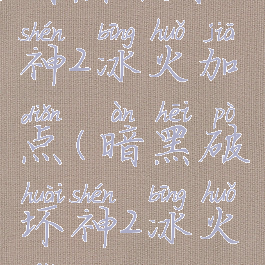 shén bīng huǒ jiā
神2冰火加
diǎn àn hēi pò
点(暗黑破
huài shén bīng huǒ
坏神2冰火